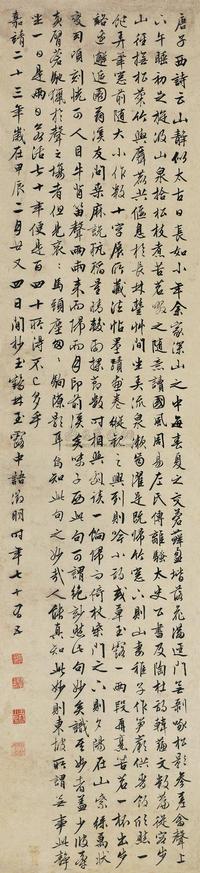 唐子西詩云山靜似太古日長如小年余家深山之中每春夏之交蒼蘚盈堦落花滿逕門無剝啄松影參差禽聲上
下午睡初足旋汲山泉拾松枝煮苦茗啜之隨意讀國風周易左氏傳離騷太史公書及陶杜詩韓蘇文數篇從容步
山徑撫松竹與麛犢共偃息於長林豐草間坐弄流泉漱齒濯足既歸竹窓下則山妻稚子作筍蕨供麥飯欣然一
飽弄筆窓前隨大小作數十字展所藏法帖墨蹟畫卷縱觀之興到則吟小詩或草玉露一兩段再烹苦茗一杯出步
谿邊邂逅園翁溪友問桑麻說秔稻量晴較雨探節數時相與劇談一餉歸而倚杖柴門之下則夕陽在山紫綠萬狀
變幻頃刻恍可人目牛背笛聲兩兩來歸而月印前溪矣味子西此句可謂妙絕然此句妙矣識其妙者蓋少彼牽
黃臂蒼馳獵於聲利之場者但見袞袞馬頭塵匆匆駒隙影耳烏知此句之妙哉人能真知此妙則東坡所謂無事此靜
坐一日是兩日若活七十年便是百四十所得不已多乎
嘉靖二十三年歲在甲辰二月廿又四日閒抄鶴林玉露中語徵明時年七十有五